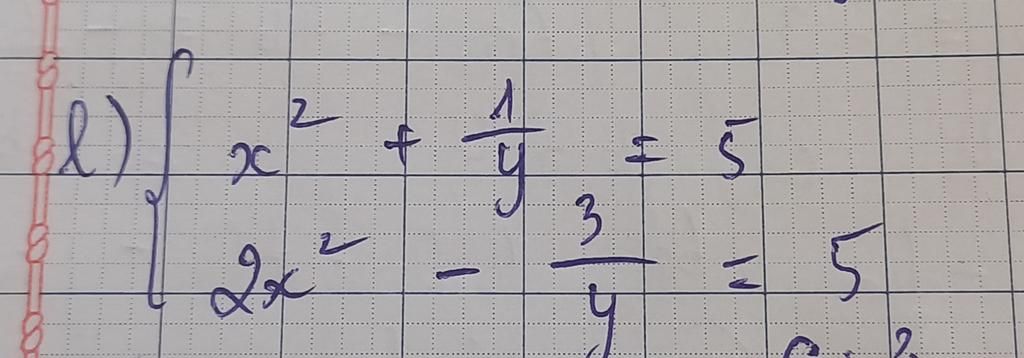 l) { x² + 1/y = 5
2x² - 3/y = 5